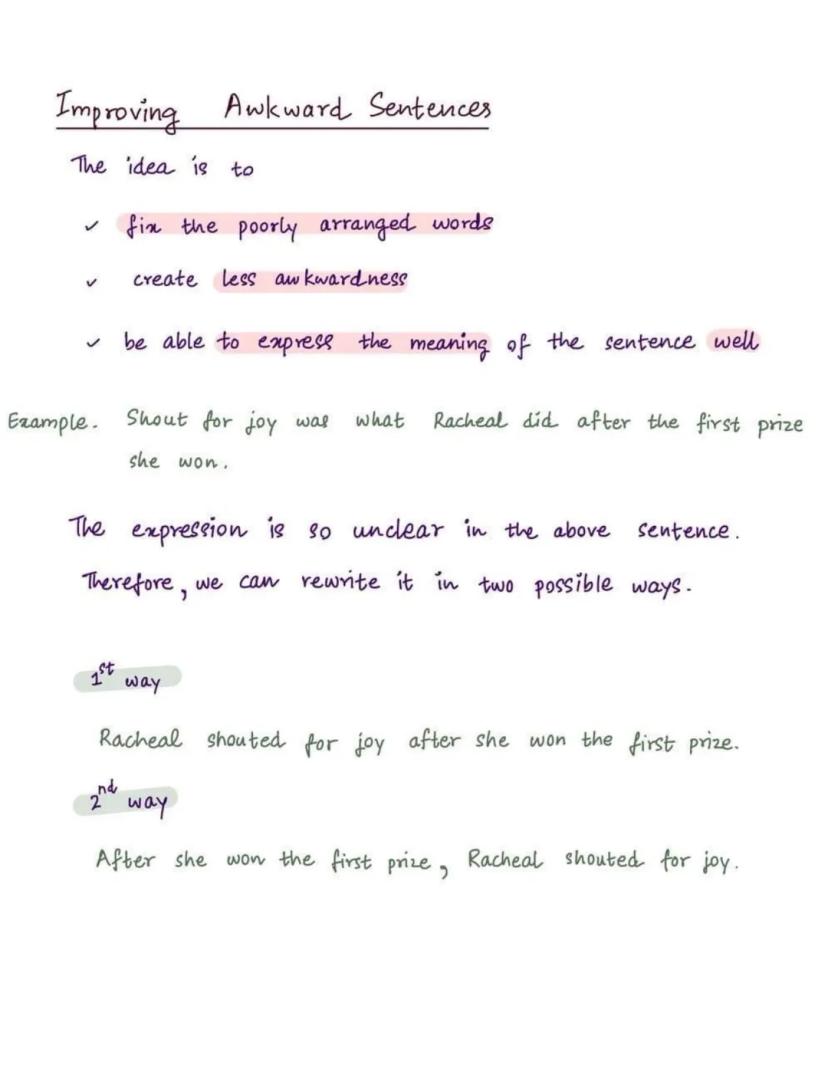 Improving Awkward Sentences
The idea is to
✓ fix the poorly arranged words
✓ create less awkwardness
✓ be able to express the meaning of the sentence well
Example. Shout for joy was what Racheal did after the first prize
she won.
The expression is so unclear in the above sentence.
Therefore, we can rewrite it in two possible ways.
1st way
Racheal shouted for joy after she won the first prize.
2nd way
After she won the first prize, Racheal shouted for joy.